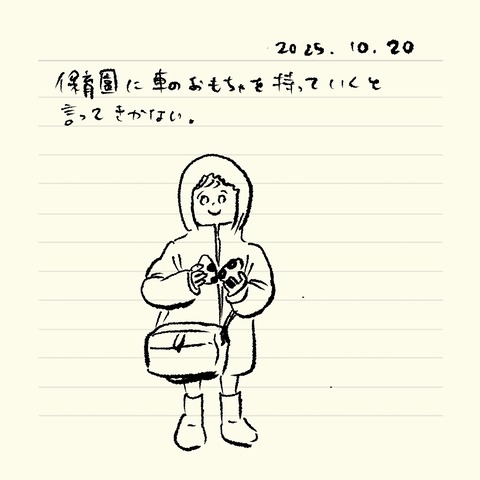 2025.10.20
保育園に車のおもちゃを持っていくと
言ってきかない。